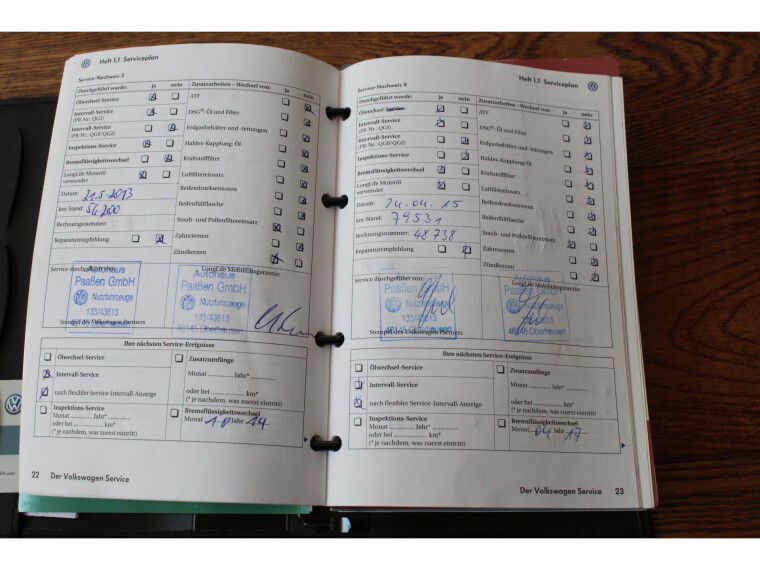 Heft 1.1 Serviceplan
Service-Nachweis 3
Durchgeführt wurde: ja nein
Ölwechsel-Service
Intervall-Service
(PR-Nr.: QG1)
Intervall-Service
(PR-Nr.: QG0/QG2)
Inspektions-Service
Bremsflüssigkeitswechsel
LongLife Motoröl
verwendet
Datum: 21.5.2013
km-Stand: 54200
Rechnungsnummer:
Reparaturempfehlung
Zusatzarbeiten – Wechsel von: ja nein
ATF
DSG®: Öl und Filter
Erdgasbehälter und -leitungen
Haldex-Kupplung: Öl
Kraftstofffilter
Luftfiltereinsatz
Reifendrucksensoren
Reifenfüllflasche
Staub- und Pollenfiltereinsatz
Zahnriemen
Zündkerzen
Service durchgeführt von:
LongLife Mobilitätsgarantie:
Autohaus
Paaßen GmbH
Nutzfahrzeuge
133/43613
46145 Oberhausen
Autohaus
Paaßen GmbH
Nutzfahrzeuge
133/43613
46145 Oberhausen
Stempel des Volkswagen Partners
Ihre nächsten Service-Ereignisse
Ölwechsel-Service
Intervall-Service
nach flexibler Service-Intervall-Anzeige
Inspektions-Service
Monat ............ Jahr* ............
oder bei ............ km*
(* je nachdem, was zuerst eintritt)
Zusatzumfänge
Monat ............ Jahr*
oder bei ............ km*
(* je nachdem, was zuerst eintritt)
Bremsflüssigkeitswechsel
Monat Jahr 14
22 Der Volkswagen Service
Heft 1.1 Serviceplan
Service-Nachweis 4
Durchgeführt wurde: ja nein
Ölwechsel-Service
Intervall-Service
(PR-Nr.: QG1)
Intervall-Service
(PR-Nr.: QG0/QG2)
Inspektions-Service
Bremsflüssigkeitswechsel
LongLife Motoröl
verwendet
Datum: 24.04.15
km-Stand: 79531
Rechnungsnummer: 48738
Reparaturempfehlung
Zusatzarbeiten – Wechsel von: ja nein
ATF
DSG®: Öl und Filter
Erdgasbehälter und -leitungen
Haldex-Kupplung: Öl
Kraftstofffilter
Luftfiltereinsatz
Reifendrucksensoren
Reifenfüllflasche
Staub- und Pollenfiltereinsatz
Zahnriemen
Zündkerzen
Service durchgeführt von:
LongLife Mobilitätsgarantie:
Paaßen GmbH
Nutzfahrzeuge
133/43613
46145 Oberhausen
Paaßen GmbH
Nutzfahrzeuge
133/43613
46145 Oberhausen
Stempel des Volkswagen Partners
Ihre nächsten Service-Ereignisse
Ölwechsel-Service
Intervall-Service
nach flexibler Service-Intervall-Anzeige
Inspektions-Service
Monat ............ Jahr* ............
oder bei ............ km*
(* je nachdem, was zuerst eintritt)
Zusatzumfänge
Monat ............ Jahr*
oder bei ............ km*
(* je nachdem, was zuerst eintritt)
Bremsflüssigkeitswechsel
Monat 04 Jahr 17
Der Volkswagen Service 23